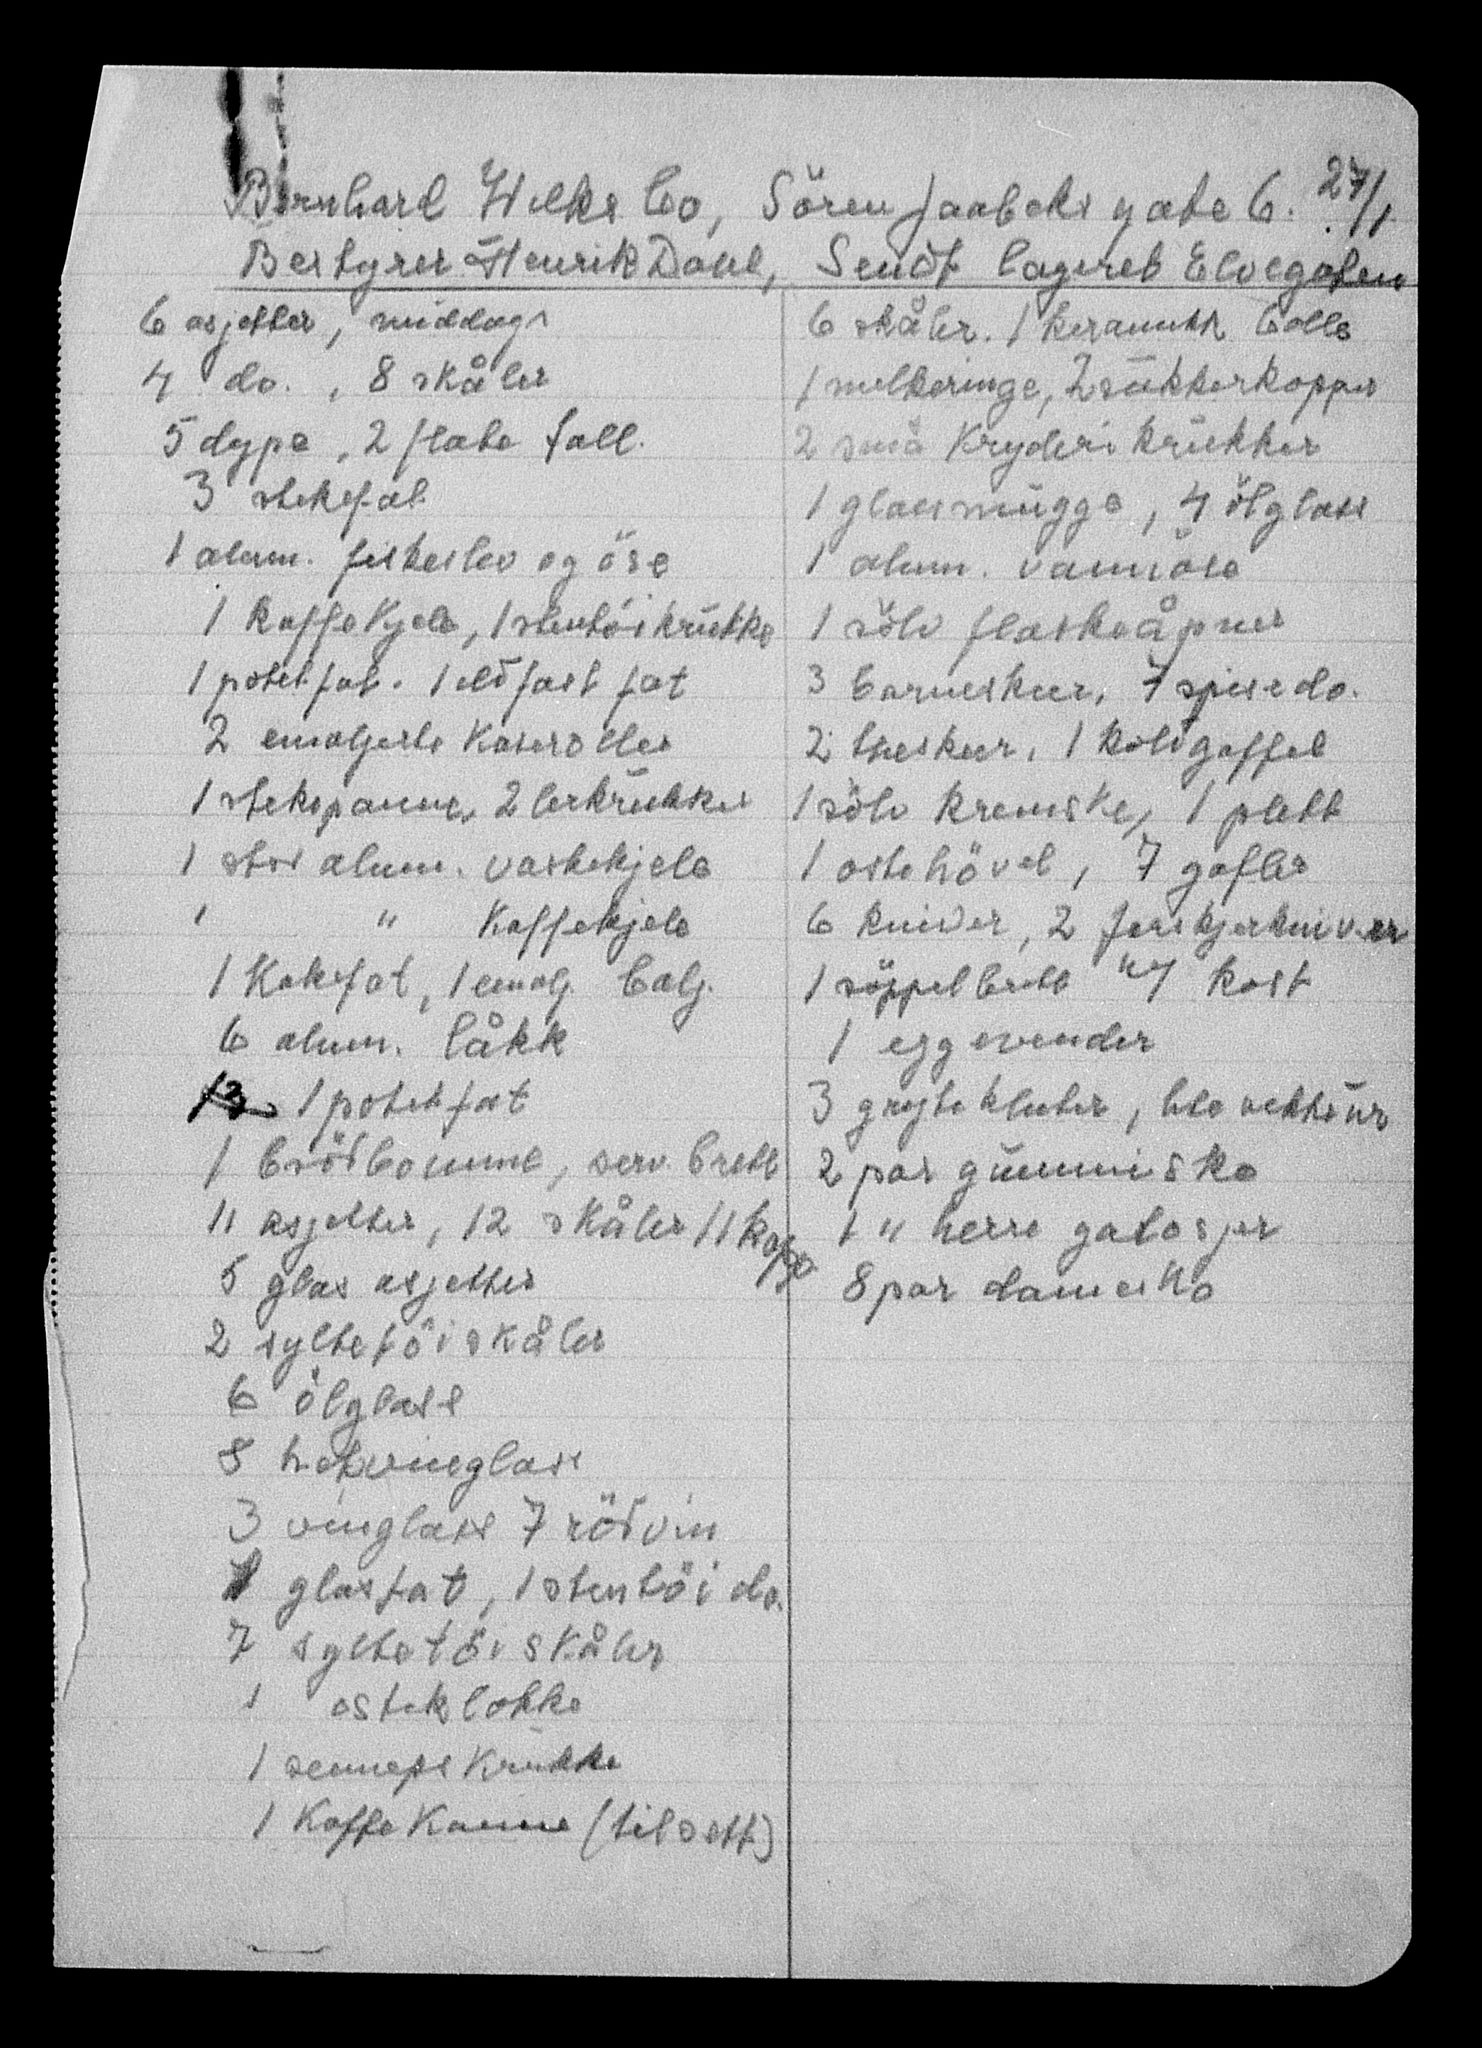 Bernhard Wilks Co, Sören Jaabeks gate 6. 27/1
Bestyrer Henrik Dahl, Sendt lageret Elvegaten
6 asjetter, middags
4 do. , 8 skåler
5 dype , 2 flate tall.
3 stekefat
1 alum. fiskeslev og öse
1 Kaffekjele, 1 stentöikrukke
1 potetfat. 1 ildfast fat
2 emaljerte Kaseroller
1 stekepanne, 2 lerkrukker
1 stor alum. vaskekjele
1 " Kaffekjele
1 Kakefat, 1 emalj. balj.
6 alum. låkk
1 potetfat
1 brödbomme, serv. brett
11 asjetter, 12 skåler 11 kopp
5 glas asjetter
2 syltetöiskåler
6 ölglass
8 hetvinsglass
3 vinglass 7 rödvin
1 glasfat, 1 stentöi do.
7 syltetöiskåler
1 osteklokke
1 senneps Krukke
1 Kaffe Kanne (til sett)
6 skåler. 1 keramikk bolle
1 melkeringe, 2 sukkerkopper
2 små Kryderikrukker
1 glassmugge, 4 ölglass
1 alum. vannöse
1 sölv flaskeåpner
3 barneskeer, 7 spise do.
2 theskeer, 1 koldgaffel
1 sölv kremske, 1 plett
1 ostehövel, 7 gafler
6 kniver, 2 forskjerkniver
1 söppelbrett " 1 kost
1 eggevender
3 grytekluter, lite vekkeur
2 par gummisko
1 " herre galosjer
8 par damesko